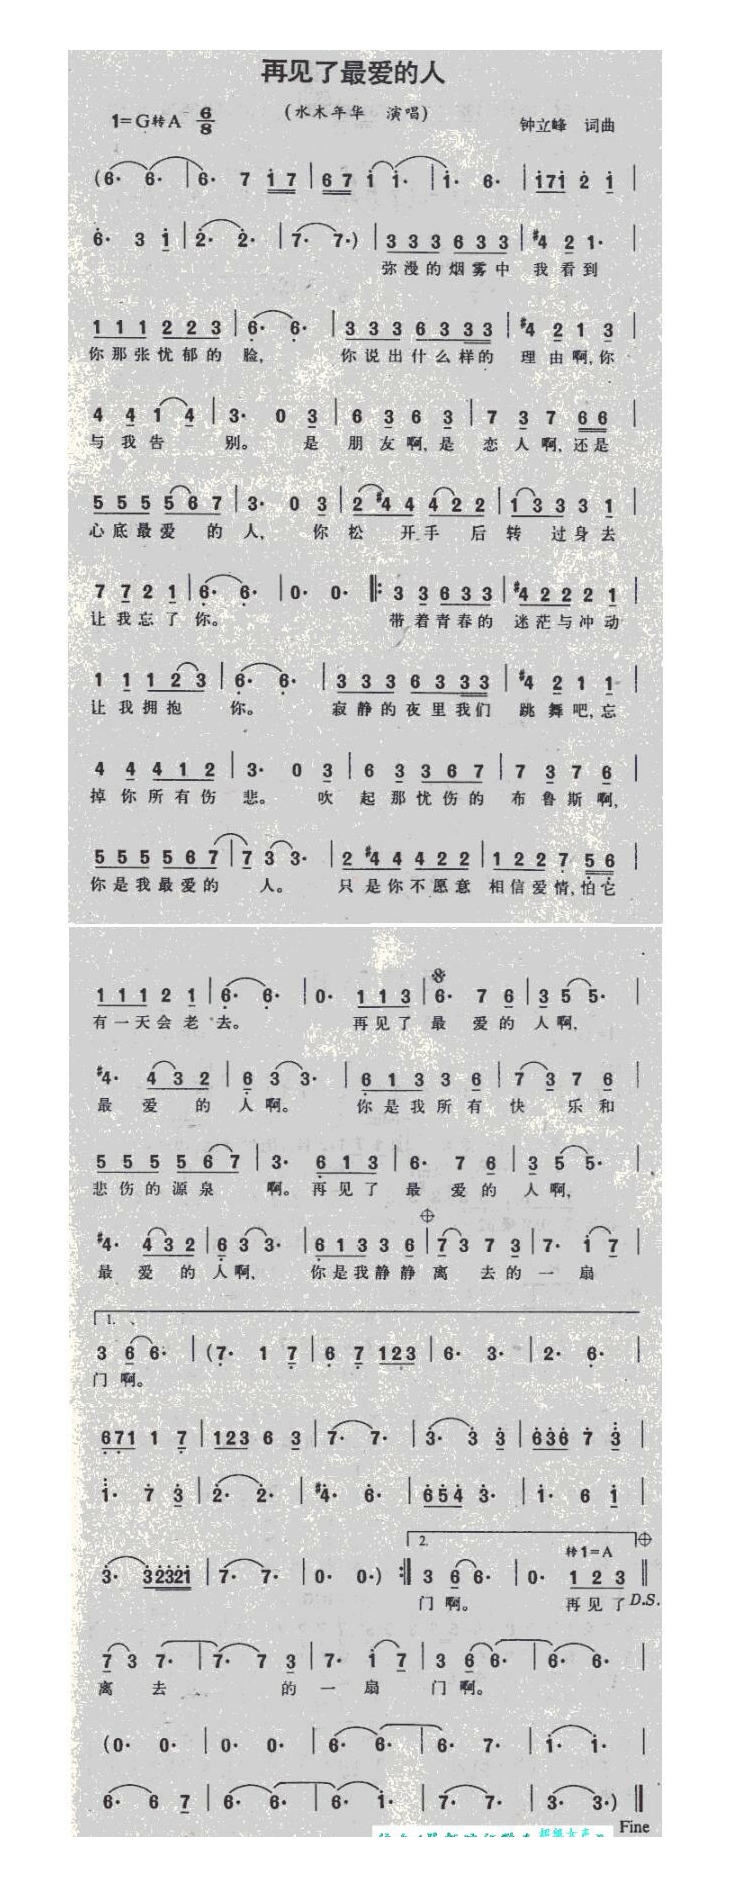 再见了最爱的人
1=G转A 6/8
(水木年华 演唱)
钟立峰 词曲
(6· 6· | 6· 7 i 7 | 6 7 i i· | i· 6· | i7i 2 i |
6· 3 i | 2· 2· | 7· 7·) | 3 3 3 6 3 3 | #4 2 1· |
弥漫的烟雾中 我看到
1 1 1 2 2 3 | 6· 6· | 3 3 3 6 3 3 3 | #4 2 1 3 |
你那张忧郁的 脸, 你说出什么样的 理由啊,你
4 4 1 4 | 3· 0 3 | 6 3 6 3 | 7 3 7 6 6 |
与我告 别。 是 朋友啊,是 恋人啊,还是
5 5 5 5 6 7 | 3· 0 3 | 2 #4 4 4 2 2 | 1 3 3 3 1 |
心底最爱 的 人, 你 松 开手 后 转 过身去
7 7 2 1 | 6· 6· | 0· 0· |: 3 3 6 3 3 | #4 2 2 2 1 |
让我忘了 你。 带着青春的 迷茫与冲动
1 1 1 2 3 | 6· 6· | 3 3 3 6 3 3 3 | #4 2 1 1 |
让我拥抱 你。 寂静的夜里我们 跳舞吧,忘
4 4 4 1 2 | 3· 0 3 | 6 3 3 6 7 | 7 3 7 6 |
掉你所有伤 悲。 吹 起那忧伤的 布鲁斯啊,
5 5 5 5 6 7 | 7 3 3· | 2 #4 4 4 2 2 | 1 2 2 7 5 6 |
你是我最爱的 人。 只是你不愿意 相信爱情,怕它
1 1 1 2 1 | 6· 6· | 0· 1 1 3 | 6· 7 6 | 3 5 5· |
有一天会老 去。 再见了 最 爱的 人啊,
#4· 4 3 2 | 6 3 3· | 6 1 3 3 6 | 7 3 7 6 |
最 爱 的 人啊。 你是我所有 快 乐和
5 5 5 5 6 7 | 3· 6 1 3 | 6· 7 6 | 3 5 5· |
悲伤的源泉 啊。再见了 最 爱的 人啊,
#4· 4 3 2 | 6 3 3· | 6 1 3 3 6 | 7 3 7 3 | 7· i 7 |
最 爱 的 人啊, 你是我静静 离 去的 一 扇
1.
3 6 6· | (7· 1 7 | 6 7 123 | 6· 3· | 2· 6· |
门啊。
671 1 7 | 123 6 3 | 7· 7· | 3· 3 3 | 636 7 3 |
i· 7 3 | 2· 2· | #4· 6· | 654 3· | i· 6 i |
2. 转1=A
3· 32321 | 7· 7· | 0· 0·) :| 3 6 6· | 0· 1 2 3 ‖
门啊。 再见了 D.S.
7 3 7· | 7· 7 3 | 7· i 7 | 3 6 6· | 6· 6· |
离 去 的 一 扇 门 啊。
(0· 0· | 0· 0· | 6· 6· | 6· 7· | i· i· |
6· 6 7 | 6· 6· | 6· i· | 7· 7· | 3· 3·) ‖
Fine